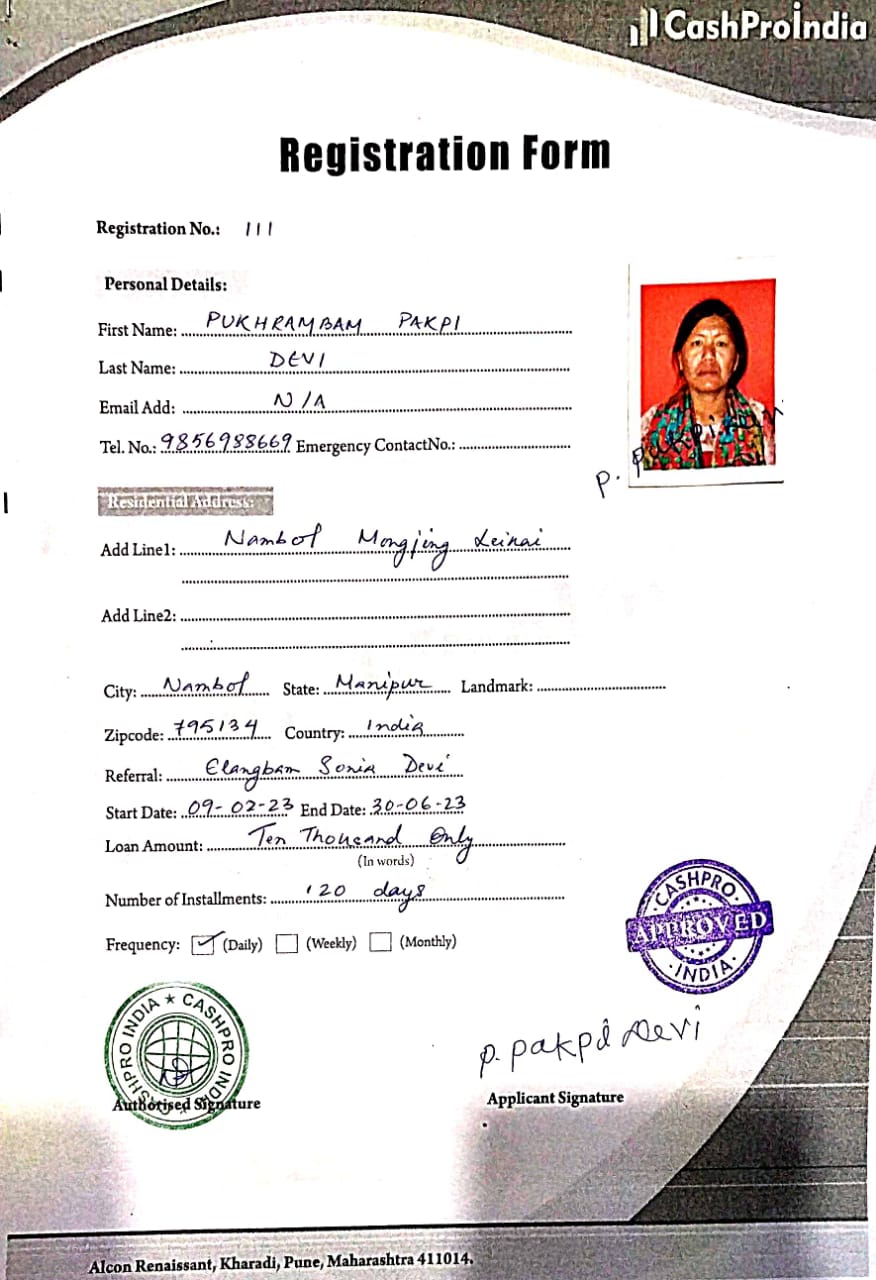 CashProIndia
Registration Form
Registration No.: 111
Personal Details:
First Name: PUKHRAMBAM PAKPI
Last Name: DEVI
Email Add: N/A
Tel. No.: 9856988669 Emergency ContactNo.:
P. Pakpi Devi
Residential Address:
Add Line1: Nambol Mongjing Leikai
Add Line2:
City: Nambol State: Manipur Landmark:
Zipcode: 795134 Country: India
Referral: Elangbam Sonia Devi
Start Date: 09-02-23 End Date: 30-06-23
Loan Amount: Ten Thousand Only
(In words)
Number of Installments: 120 days
Frequency: (Daily) (Weekly) (Monthly)
CASHPRO
APPROVED
INDIA
CASHPRO INDIA ★ CASHPRO INDIA
P. Pakpi Devi
Authorised Signature
Applicant Signature
Alcon Renaissant, Kharadi, Pune, Maharashtra 411014.